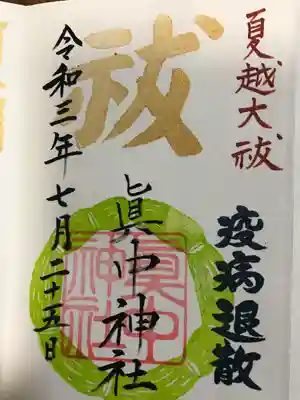 夏越大祓
疫病退散
祓
眞中神社
眞中
神社
令和三年七月二十五日